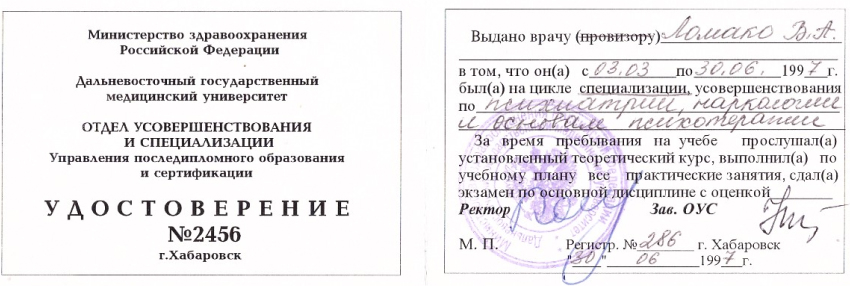 Министерство здравоохранения
Российской Федерации
Дальневосточный государственный
медицинский университет
ОТДЕЛ УСОВЕРШЕНСТВОВАНИЯ
И СПЕЦИАЛИЗАЦИИ
Управления последипломного образования
и сертификации
УДОСТОВЕРЕНИЕ
№2456
г.Хабаровск
Выдано врачу (провизору) Ломако В.А.
в том, что он(а) с 03.03 по 30.06. 1997г.
был(а) на цикле специализации, усовершенствования
по психиатрии, наркологии
и основам психотерапии
За время пребывания на учебе прослушал(а)
установленный теоретический курс, выполнил(а) по
учебному плану все практические занятия, сдал(а)
экзамен по основной дисциплине с оценкой
Ректор Зав. ОУС
М. П. Регистр. № 286 г. Хабаровск
"30" 06 1997г.